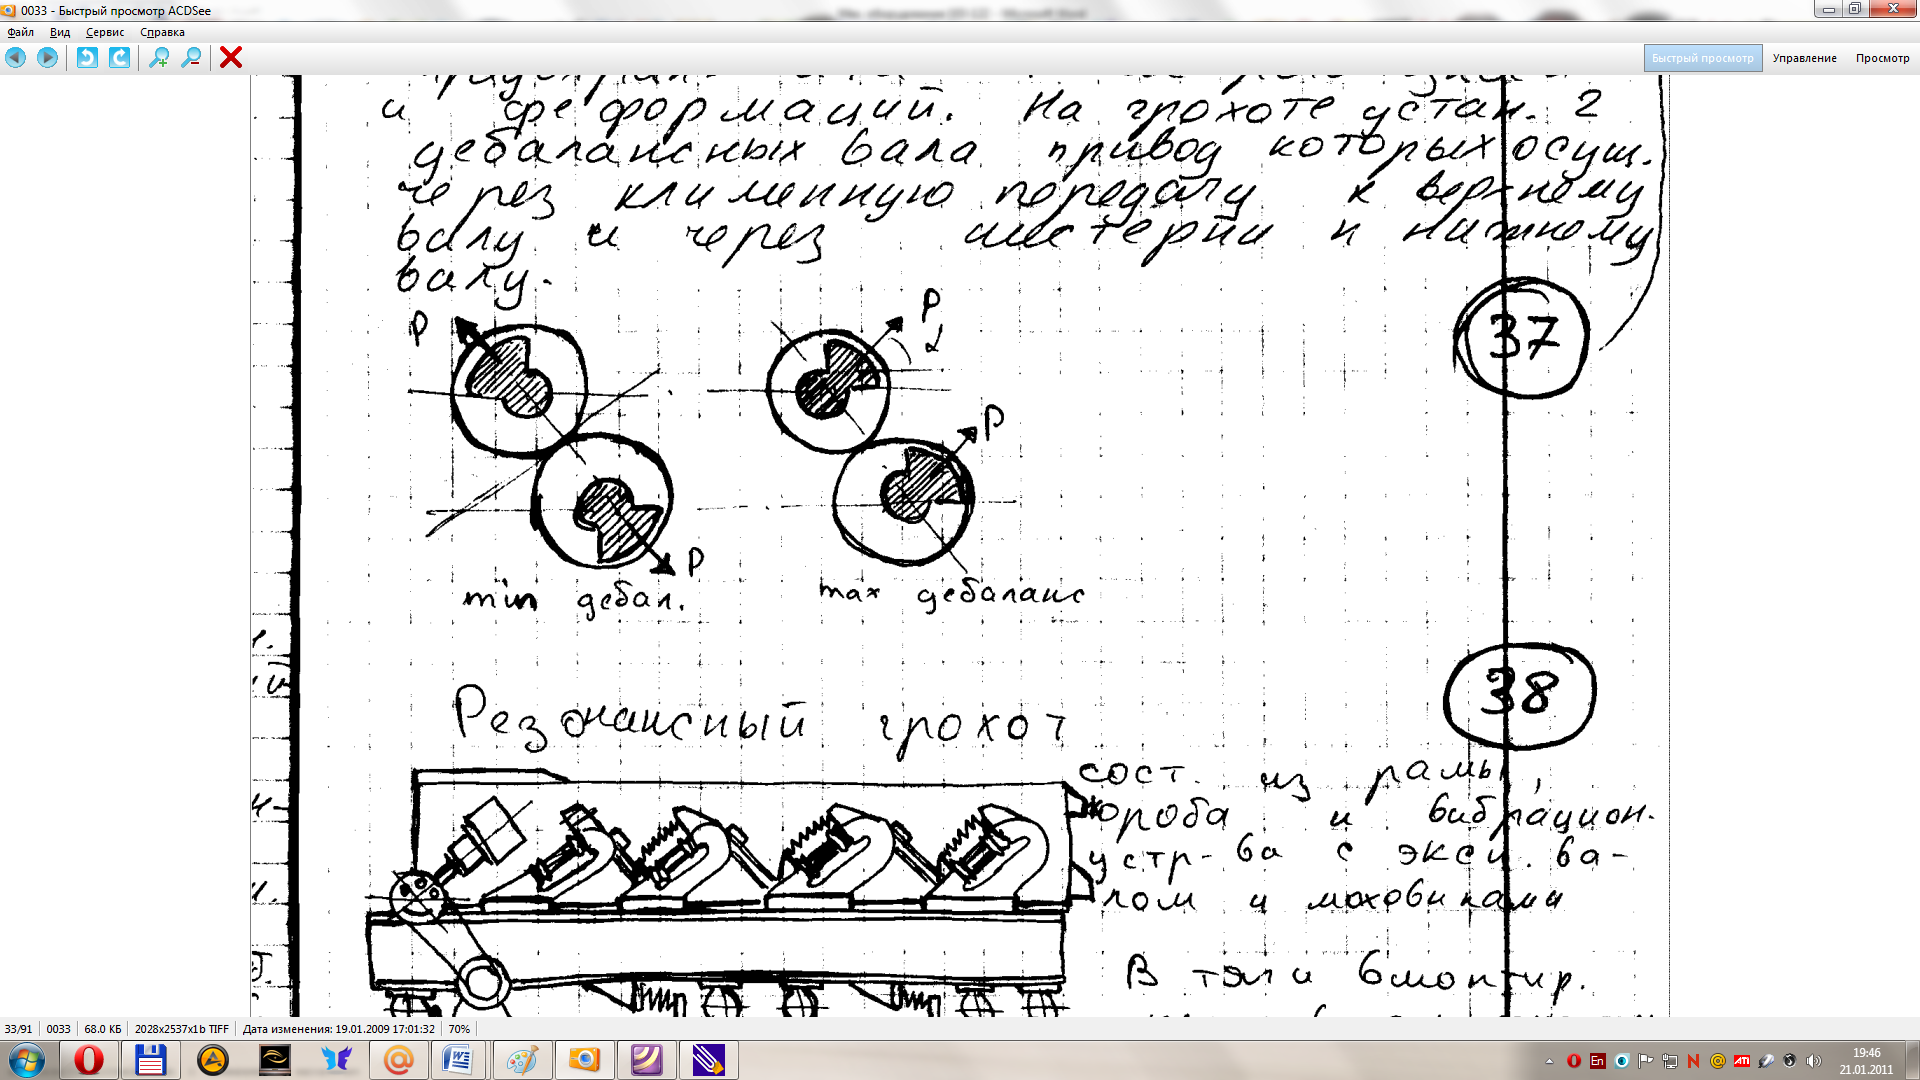 0033 - Быстрый просмотр ACDSee
Файл Вид Сервис Справка
Быстрый просмотр Управление Просмотр
и деформаций. На грохоте устан. 2
дебалансных вала привод которых осущ.
через клименную передачу к верхнему
валу и через шестерни к нижнему
валу.
P P α P P
min дебал. max дебаланс
37
38
Резонансный грохот
сост. из рамы,
короба и вибрацион.
устр-ва с эксц. ва-
лом и маховиками
В тяги вмонтир.
33/91 0033 68.0 КБ 2028x2537x1b TIFF Дата изменения: 19.01.2009 17:01:32 70%
En
ATI
19:46
21.01.2011